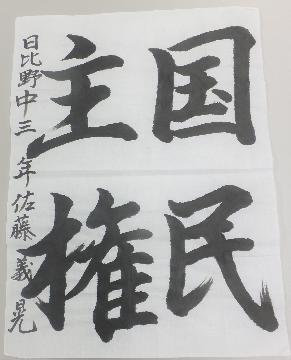 国民
主権
日比野中三年佐藤義晃